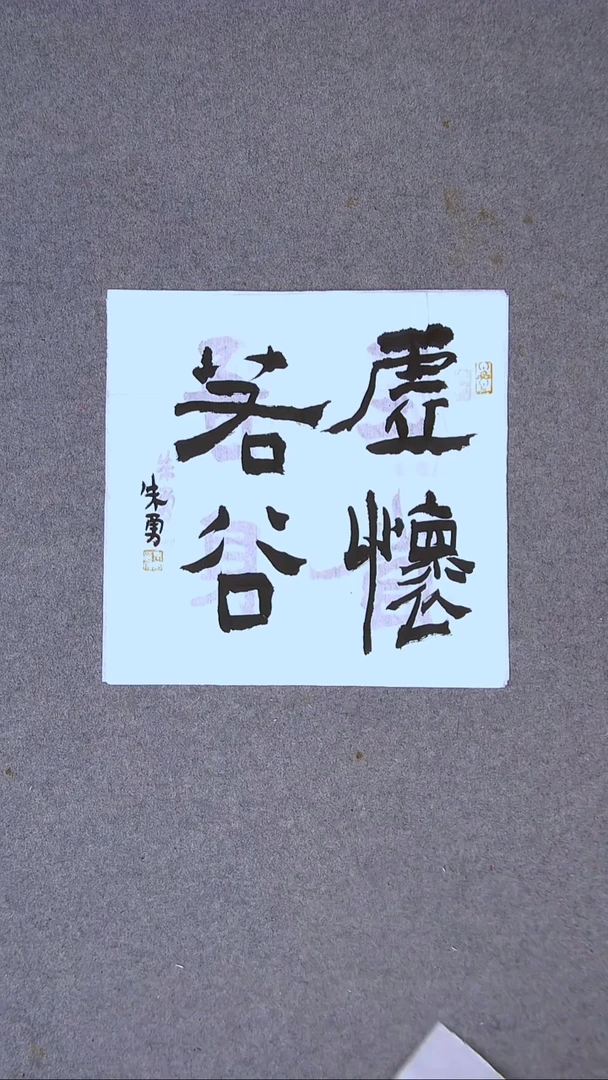 虛懷
若谷
朱勇